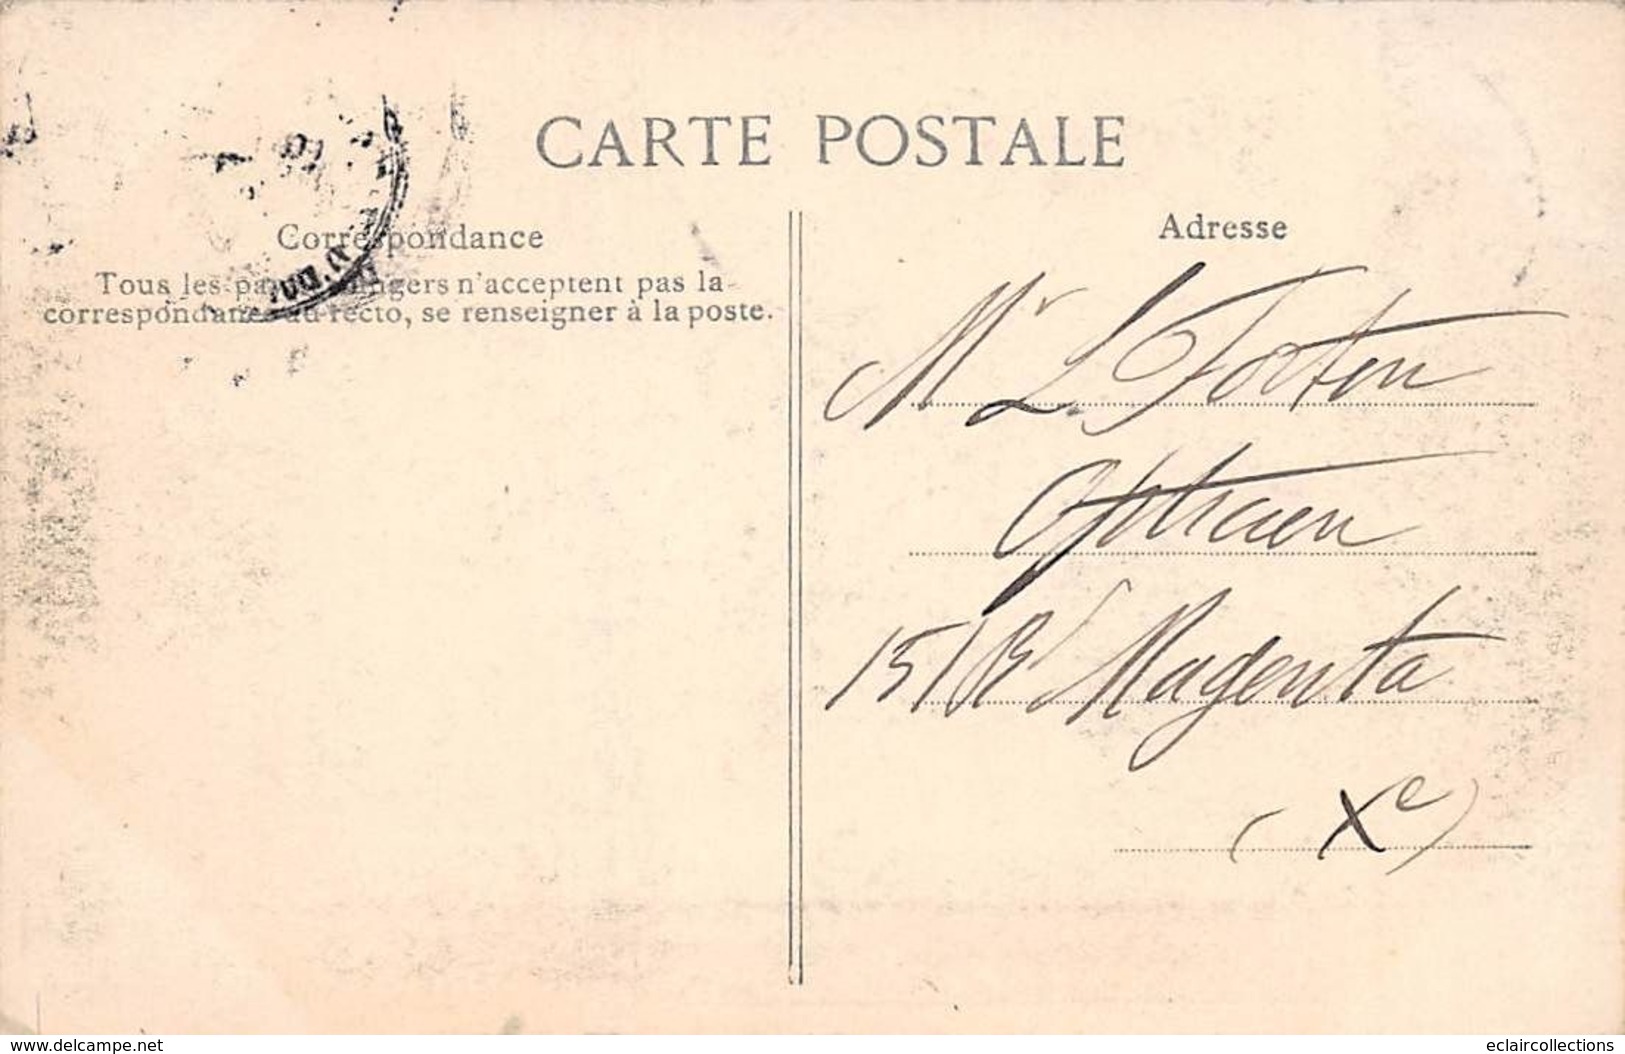 CARTE POSTALE
Correspondance
Tous les pays étrangers n'acceptent pas la
correspondance au recto, se renseigner à la poste.
Adresse
Mr L. Forten
Opticien
151 Bd Magenta
(Xe)
delcampe.net
eclaircollections